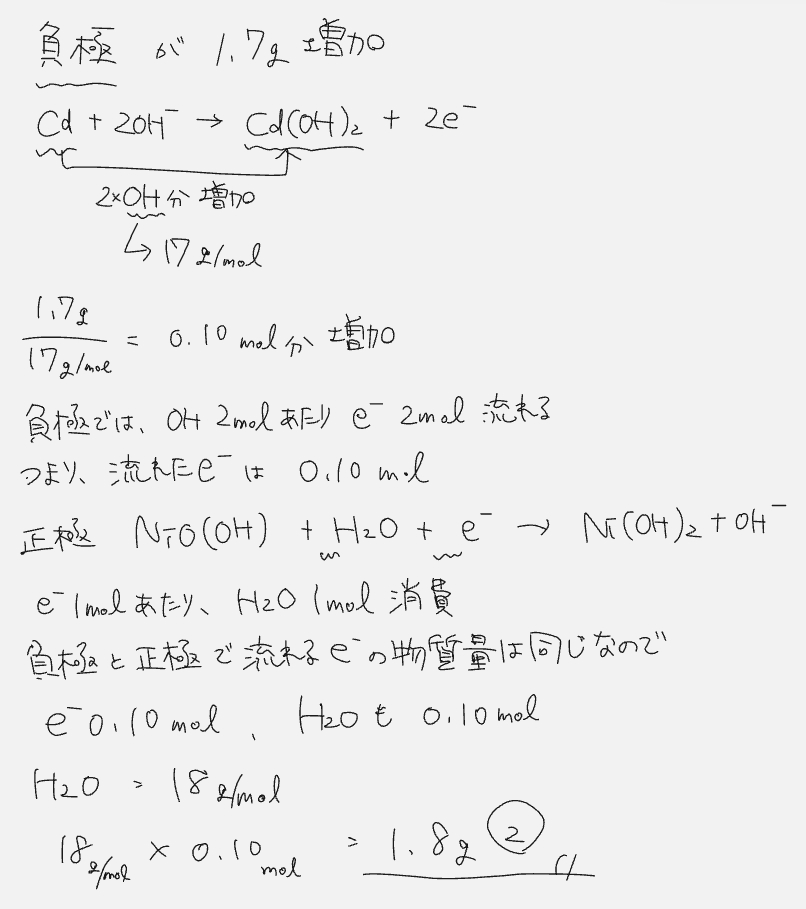 負極 が 1.7g 増加
Cd + 2OH⁻ → Cd(OH)₂ + 2e⁻
2×OH分 増加
↳ 17 g/mol
1.7g / 17g/mol = 0.10 mol分 増加
負極では、OH 2molあたり e⁻ 2mol 流れる
つまり、流れたe⁻は 0.10 mol
正極 NiO(OH) + H₂O + e⁻ → Ni(OH)₂ + OH⁻
e⁻ 1molあたり、H₂O 1mol 消費
負極と正極で流れるe⁻の物質量は同じなので
e⁻ 0.10 mol 、 H₂Oも 0.10 mol
H₂O = 18 g/mol
18g/mol × 0.10mol = 1.8g ②